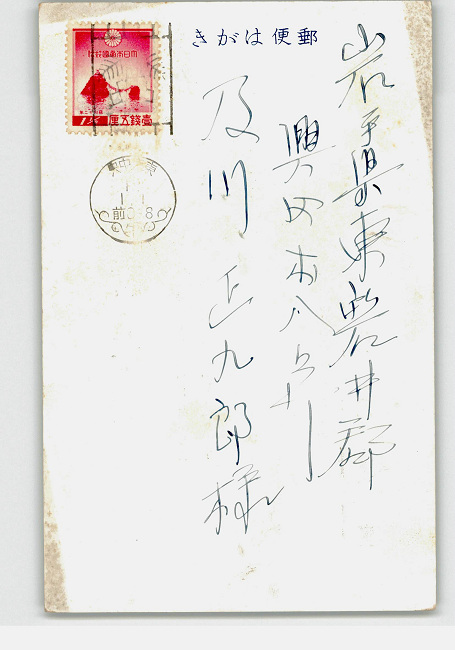 きがは便郵
岩手県東磐井郡
興田村八
及川正九郎様
大日本帝國郵便
壹錢五厘
前0-8